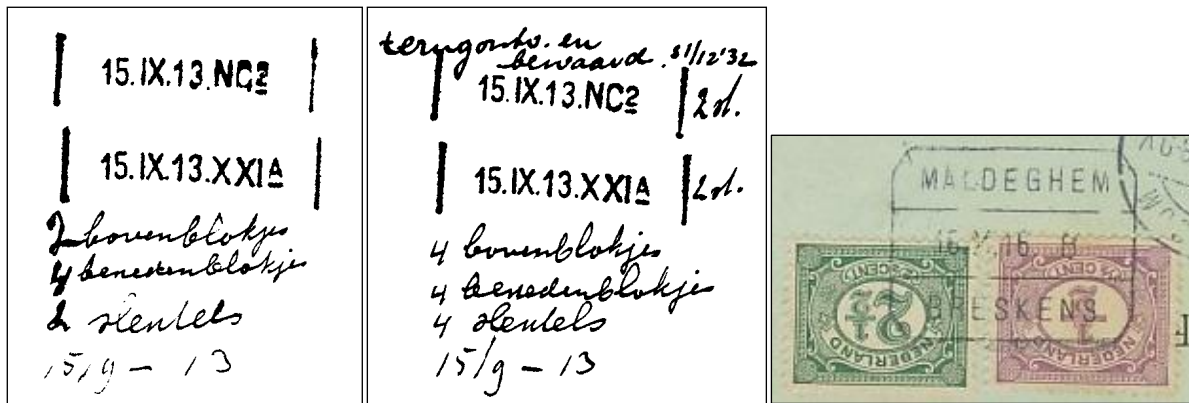 15.IX.13.NC2
15.IX.13.XXIA
2 bovenblokjes
4 benedenblokjes
2 sleutels
15/9 - 13
terugontv. en
bewaard. 31/12'32
15.IX.13.NC2 2 st.
15.IX.13.XXIA 2 st.
4 bovenblokjes
4 benedenblokjes
4 sleutels
15/9 - 13
MALDEGHEM
BRESKENS
2½ CENT
NEDERLAND
7½ CENT
NEDERLAND